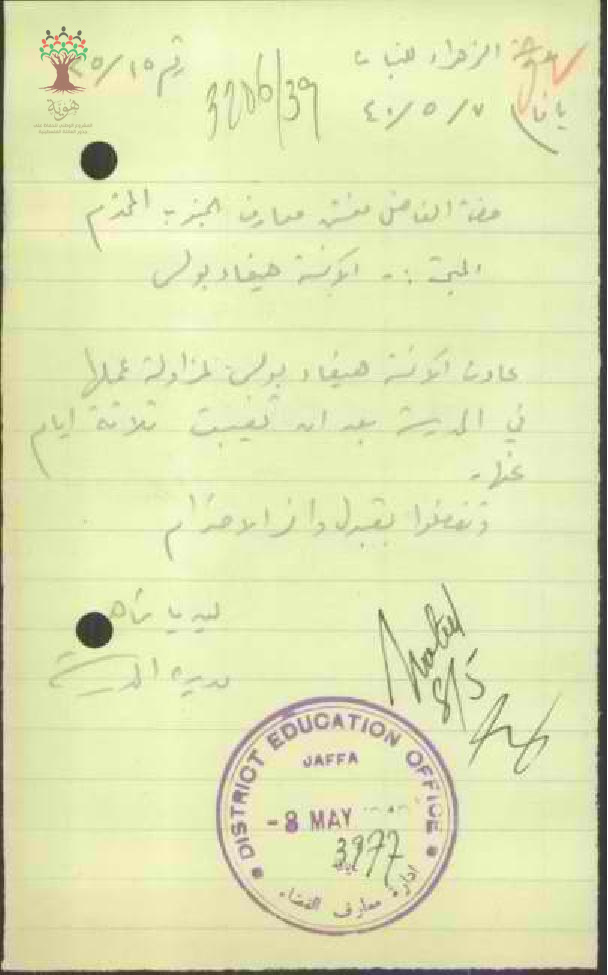 مدرسة الزهراء للبنات
رقم ٣٥/١٥
يافا ٧/٥/٤٠
3206/39
حضرة الفاضل مفتش معارف الجنوب المحترم
المبحث :- الآنسة هيفاء بولس
عادت الآنسة هيفاء بولس لمزاولة عملها
في المدرسة بعد ان تغيبت ثلاثة ايام
عنها.
وتفضلوا بقبول وافر الاحترام
ليديا
مديرة المدرسة
Noted
8/5
DISTRICT EDUCATION OFFICE
JAFFA
- 8 MAY
3977
ادارة معارف القضاء
هوية